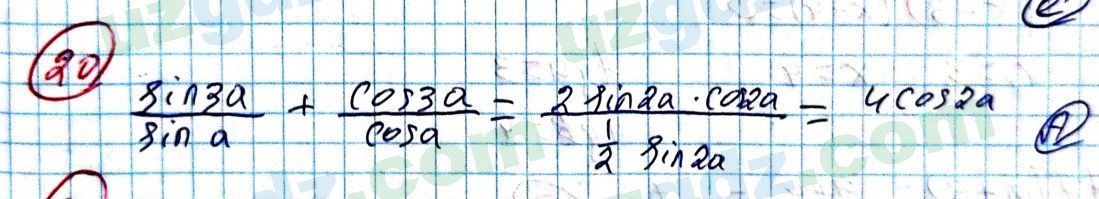 20
sin3a/sin a + cos3a/cosa = 2 sin2a · cos2a / 1/2 sin2a = 4cos2a A